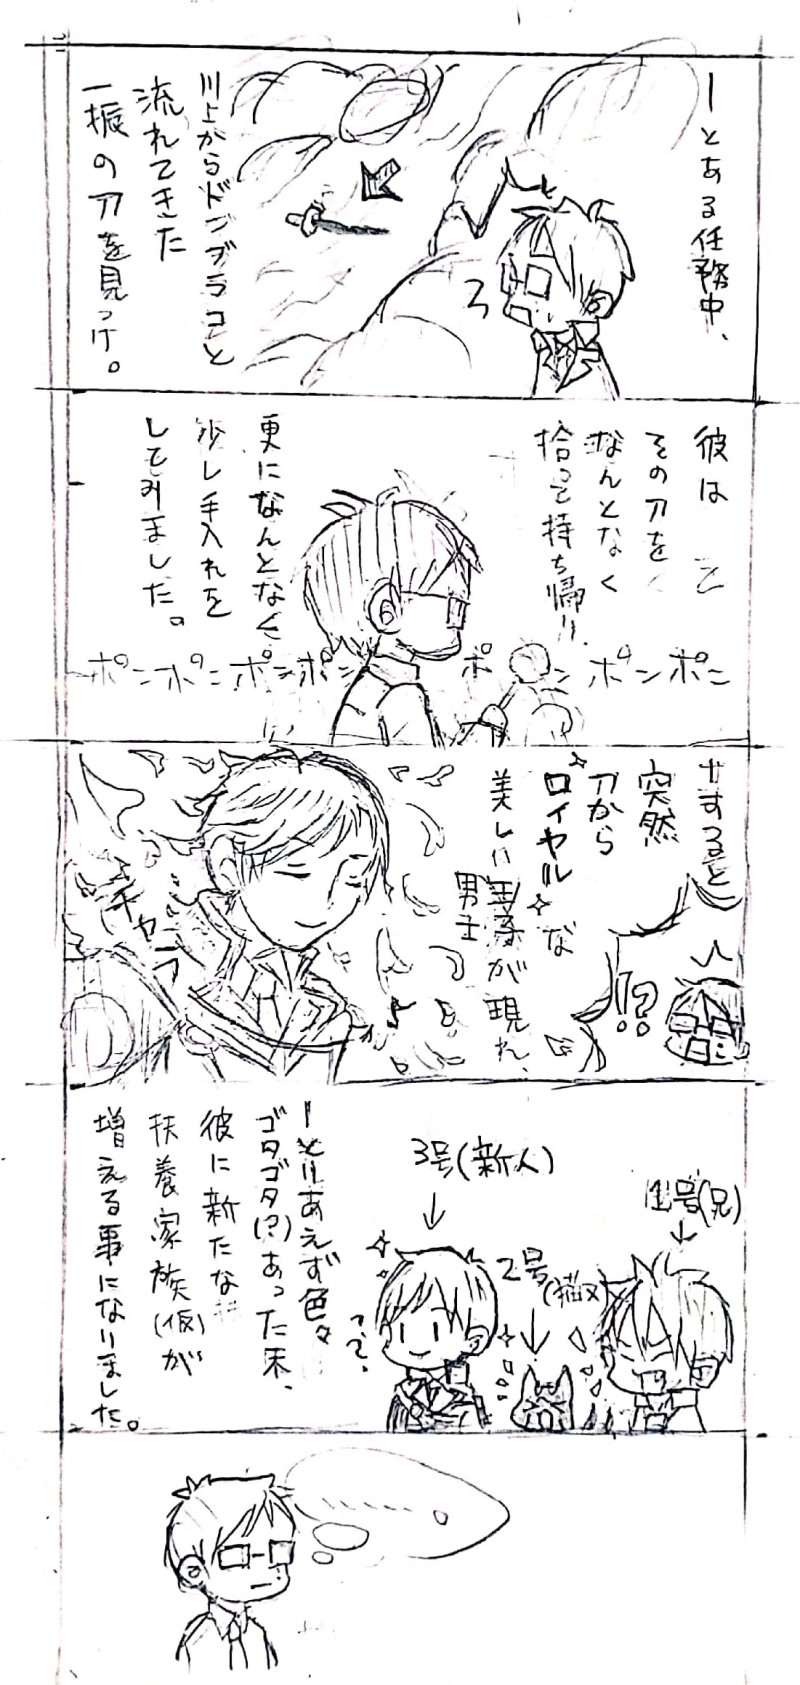 ーとある任務中、
川上からドンブラコと
流れてきた
一振の刀を見つけ。
彼は
その刀を
なんとなく
拾って持ち帰り、
更になんとなく
少し手入れを
してみました。
ポンポンポンポン ポンポンポン
†すると
突然
刀から
ロイヤルな
美しい
男士
が現れ、
キラァ
!?
1号(兄)
2号(猫又)
3号(新人)
って。
ーとりあえず色々
ゴタゴタ(?)あった末、
彼に新たな
扶養家族(仮)が
増える事になりました。